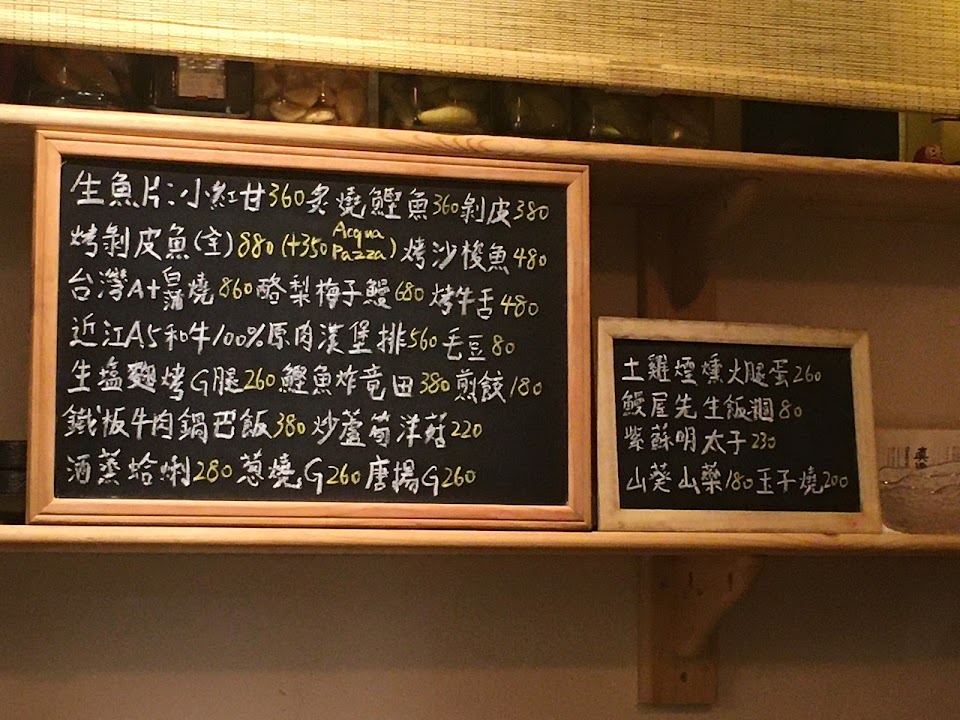 生魚片:小紅甘360炙燒鰹魚360剝皮380
烤剝皮魚(全)880(+350 Acqua Pazza)烤沙梭魚480
台灣A+白蒲燒860酪梨梅子鰻680烤牛舌480
近江A5和牛100%原肉漢堡排560毛豆80
生塩麴烤G腿260鰹魚炸竜田380煎餃180
鐵板牛肉鍋巴飯380炒蘆筍洋菇220
酒蒸蛤蜊280蔥燒G260唐揚G260
土雞煙燻火腿蛋260
鰻屋先生飯糰80
紫蘇明太子230
山葵山藥180玉子燒200